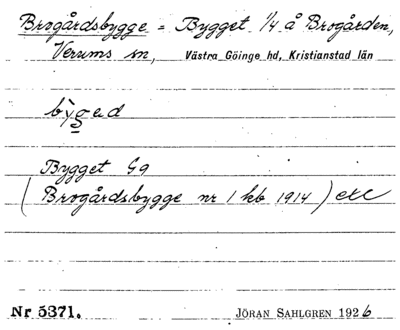 Brogårdsbygge = Bygget 1/4 å Brogården,
Verums sn, Västra Göinge hd, Kristianstad län
bỳged
Bygget Gg
(Brogårdsbygge nr 1 kb 1914) etc
Nr 5371. JÖRAN SAHLGREN 1926